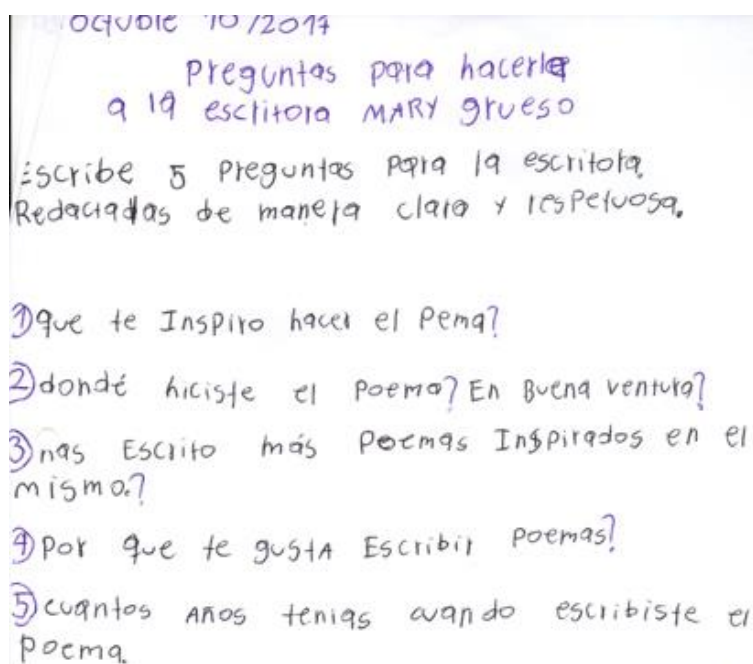 octubre 10/2017
Preguntas para hacerle
a la escritora MARY grueso
Escribe 5 Preguntas para la escritora,
Redactadas de manera clara y respetuosa.
① que te Inspiro hacer el Pema?
② dondé hiciste el Poema? En Buena ventura?
③ has Escrito más Poemas Inspirados en el
mismo.?
④ Por que te gustA Escribir poemas?
⑤ cuantos Años tenias cuando escribiste el
poema.